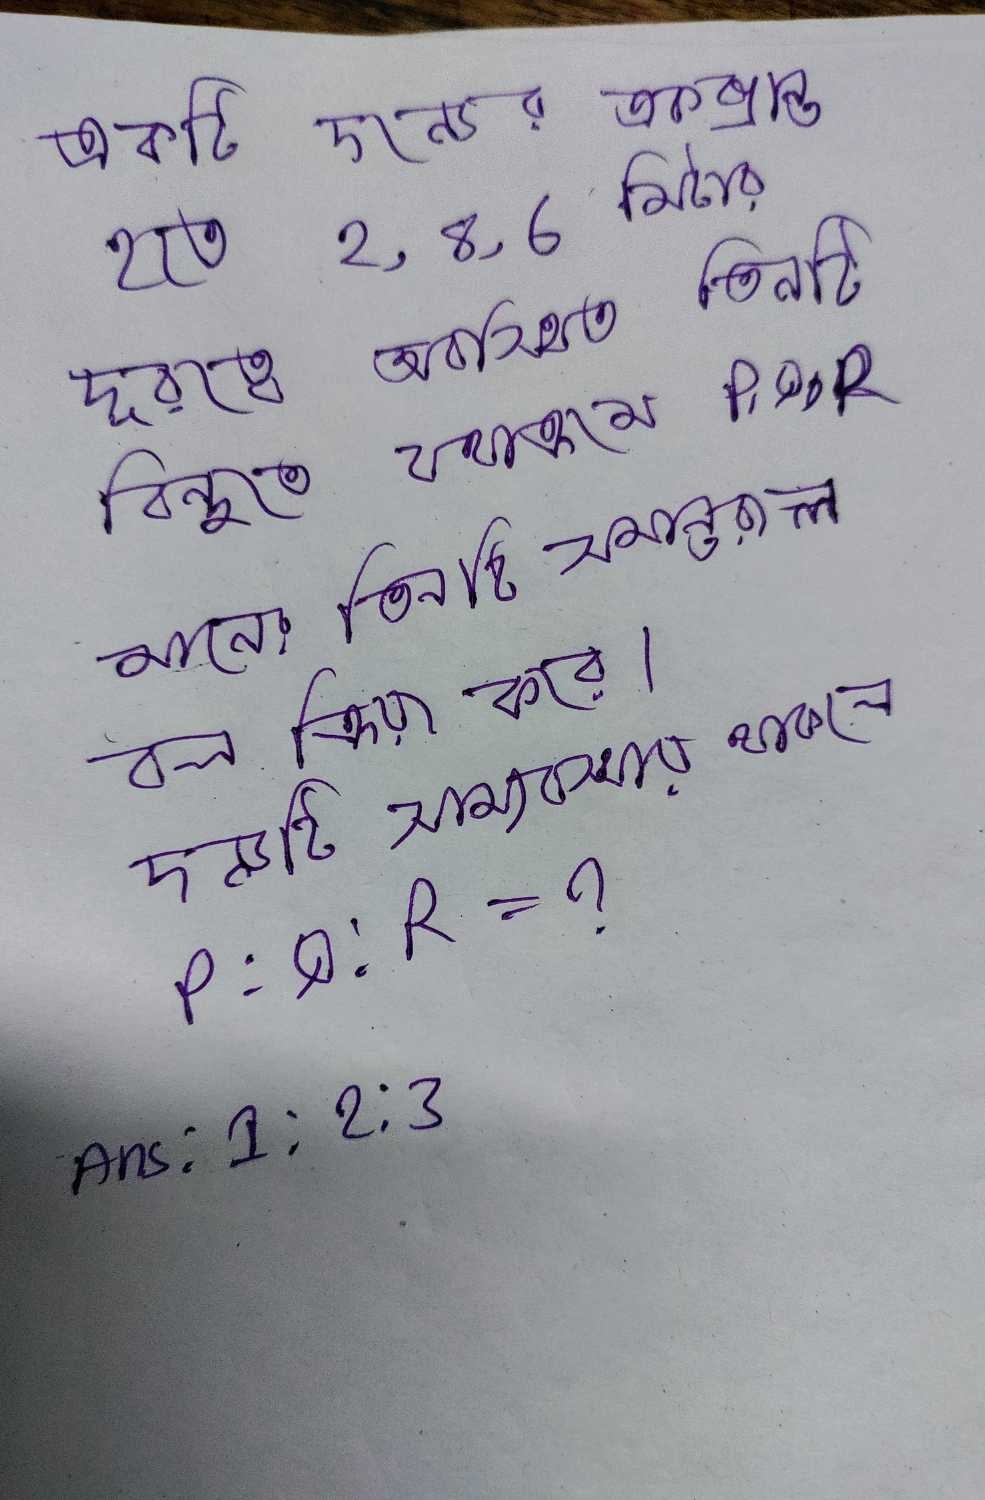 একটি দন্ডের একপ্রান্ত
হতে ২, ৪, ৬ মিটার
দূরত্বে অবস্থিত তিনটি
বিন্দুতে যথাক্রমে P, Q, R
মানের তিনটি সমান্তরাল
বল ক্রিয়া করে।
দন্ডটি সাম্যবস্থায় থাকলে
P : Q : R = ?
Ans : 1 : 2 : 3